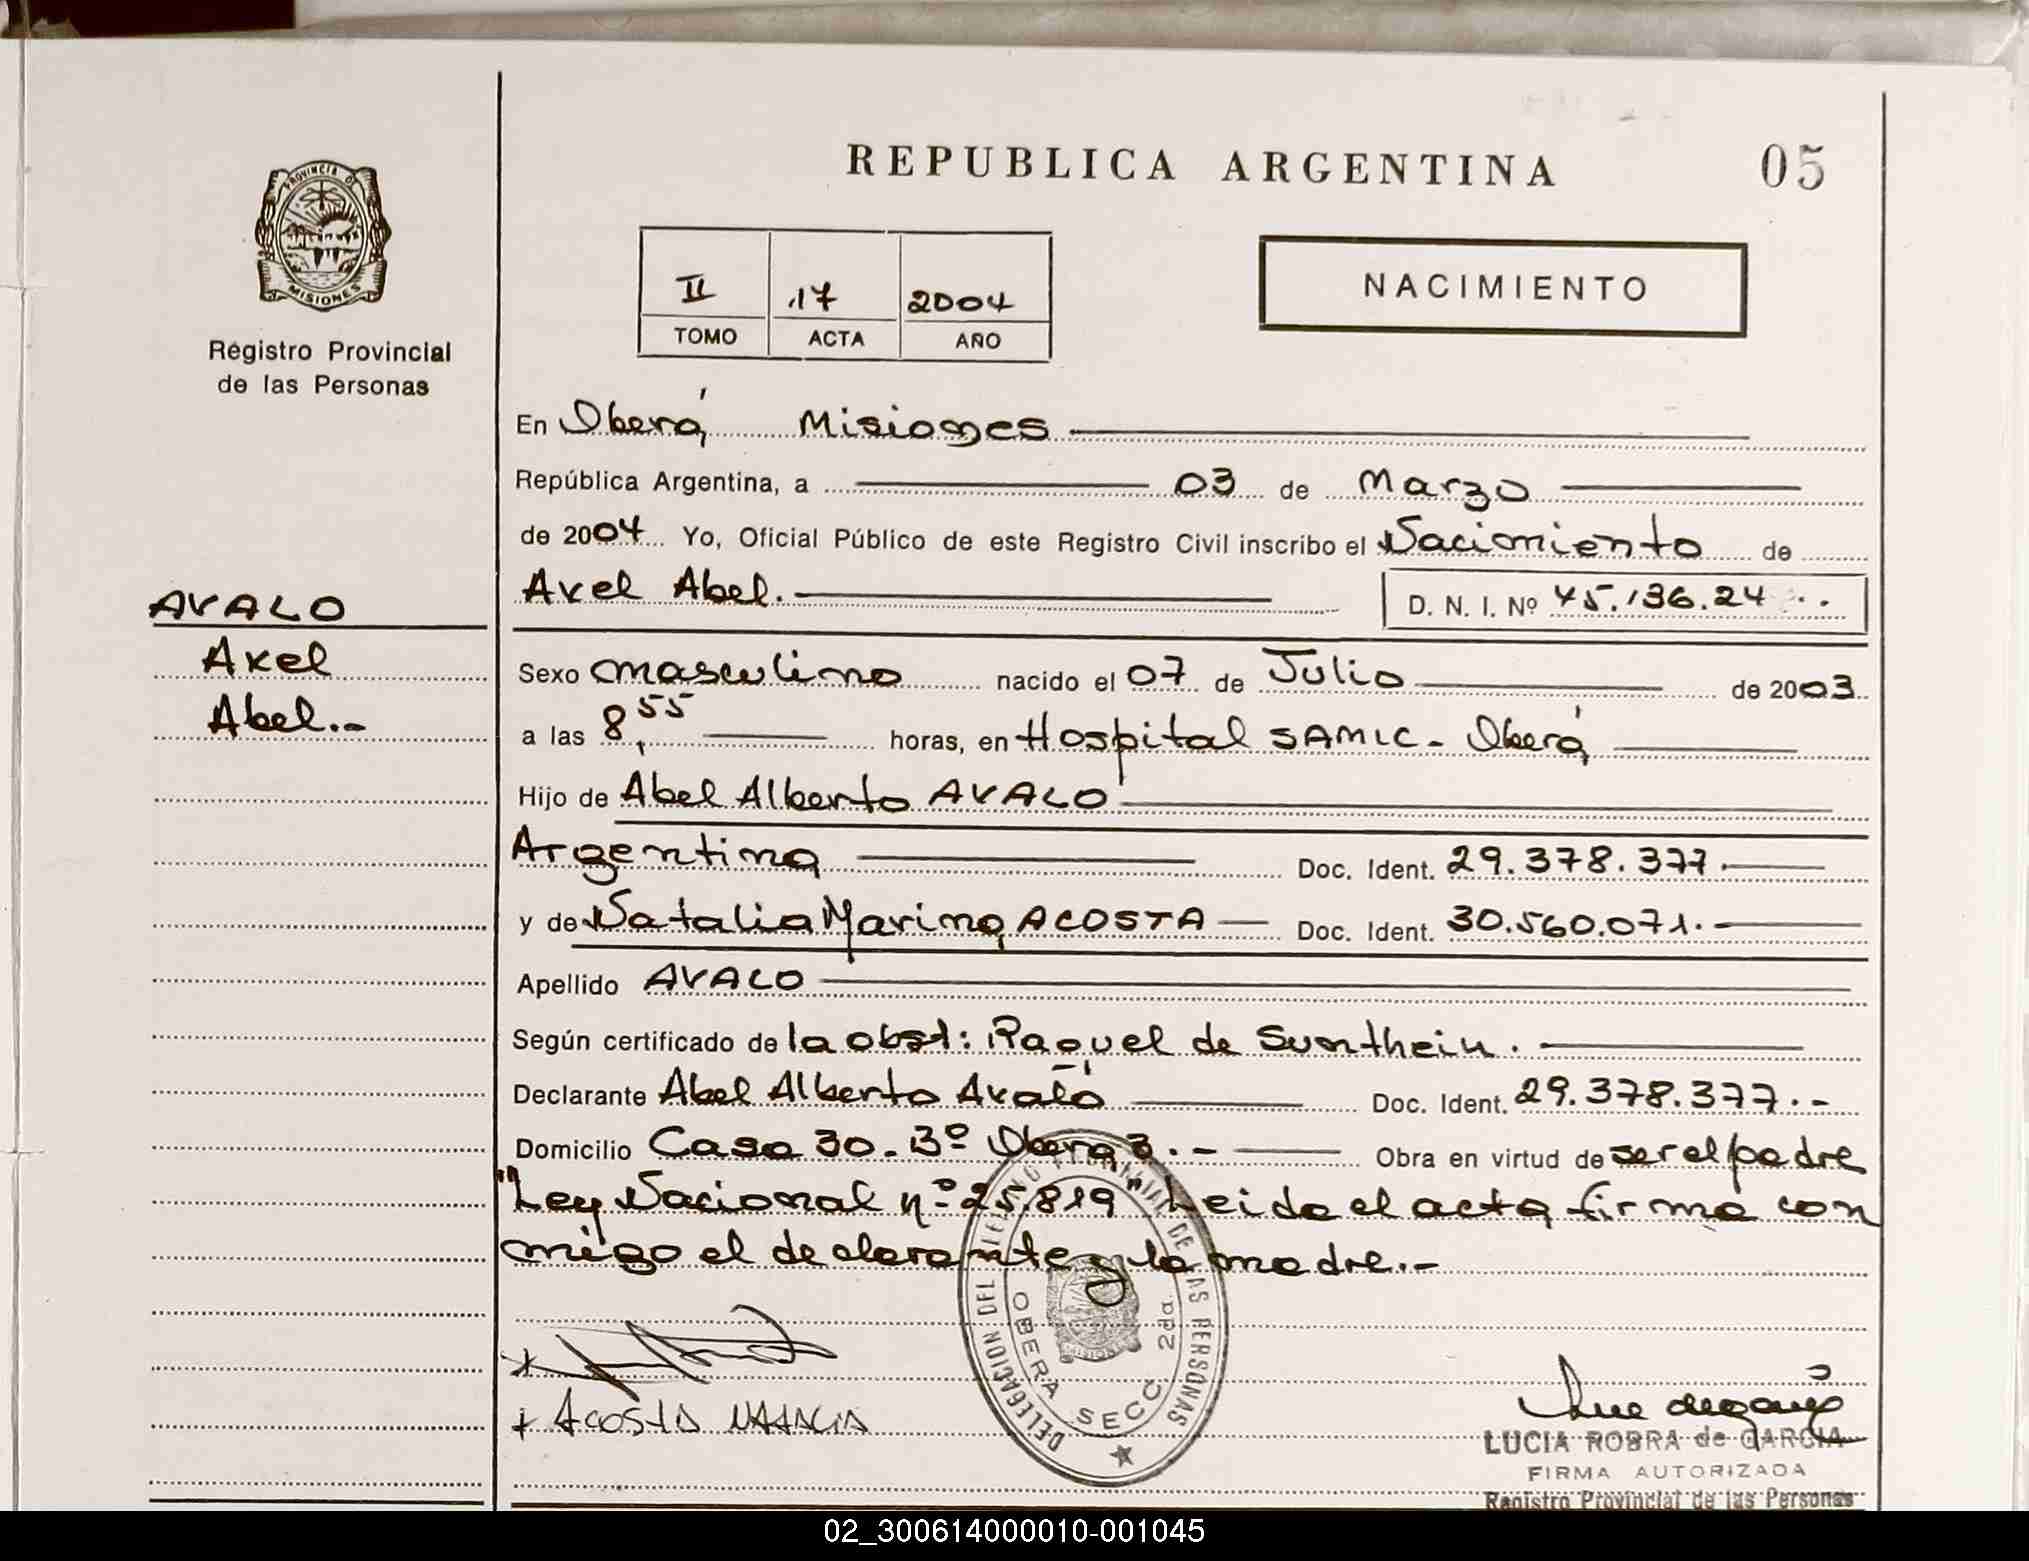 PROVINCIA DE
MISIONES
Registro Provincial
de las Personas
AVALO
Axel
Abel.-
REPUBLICA ARGENTINA
05
II 17 2004
TOMO ACTA AÑO
NACIMIENTO
En Oberá, Misiones
República Argentina, a 03 de Marzo
de 2004 Yo, Oficial Público de este Registro Civil inscribo el Nacimiento de
Axel Abel. D. N. I. Nº 45.136.24
Sexo masculino nacido el 07 de Julio de 2003
a las 8,55 horas, en Hospital SAMIC - Oberá
Hijo de Abel Alberto AVALO
Argentina Doc. Ident. 29.378.377.
y de Natalia Marina ACOSTA Doc. Ident. 30.560.071.
Apellido AVALO
Según certificado de la obst: Raquel de Sunthein.
Declarante Abel Alberto Avalo Doc. Ident. 29.378.377.-
Domicilio Casa 30. Bº Oberá 3.- Obra en virtud de ser el padre
"Ley Nacional nº 25.819" Leida el acta firma con
migo el declarante y la madre.-
DELEGACION DEL REGISTRO PROVINCIAL DE LAS PERSONAS
OBERA SECC 2da.
MISIONES
ACOSTA NATALIA
LUCIA ROBRA de GARCIA
FIRMA AUTORIZADA
Registro Provincial de las Personas
02_300614000010-001045